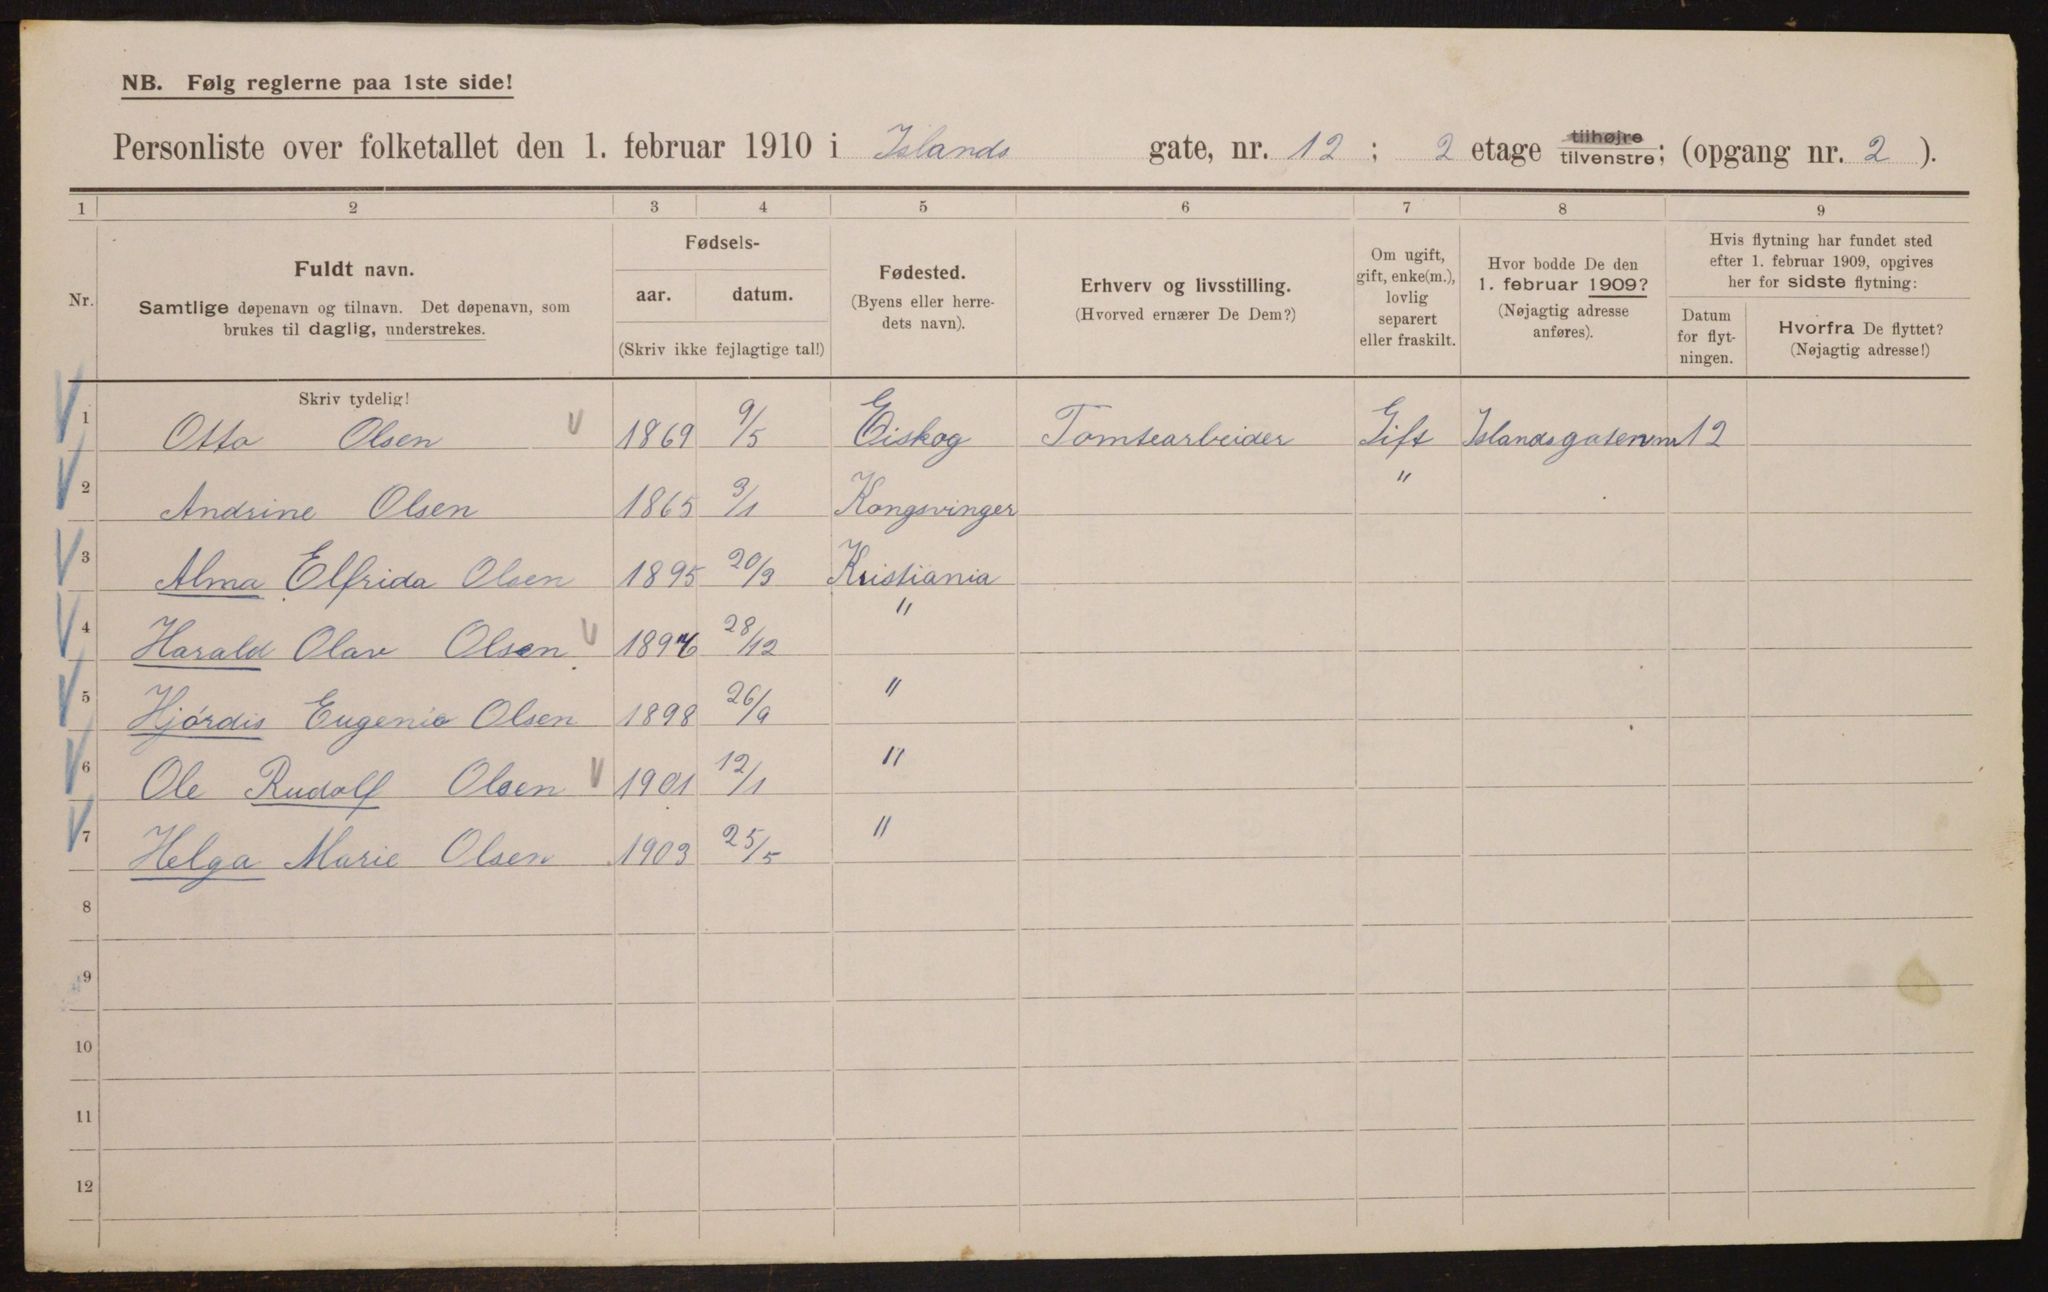 NB. Følg reglerne paa 1ste side!
Personliste over folketallet den 1. februar 1910 i Islands gate, nr. 12 ; 2 etage tilhøjre tilvenstre; (opgang nr. 2 ).
1 2 3 4 5 6 7 8 9
Nr.
Fuldt navn.
Samtlige døpenavn og tilnavn. Det døpenavn, som
brukes til daglig, understrekes.
Fødsels-
aar. datum.
(Skriv ikke fejlagtige tal!)
Fødested.
(Byens eller herre-
dets navn).
Erhverv og livsstilling.
(Hvorved ernærer De Dem?)
Om ugift,
gift, enke(m.),
lovlig
separert
eller fraskilt.
Hvor bodde De den
1. februar 1909?
(Nøjagtig adresse
anføres).
Hvis flytning har fundet sted
efter 1. februar 1909, opgives
her for sidste flytning:
Datum
for flyt-
ningen.
Hvorfra De flyttet?
(Nøjagtig adresse!)
Skriv tydelig!
1 Otto Olsen 1869 9/5 Eiskog Tomtearbeider Gift Islandsgaten nr 12
2 Andrine Olsen 1865 3/1 Kongsvinger "
3 Alma Elfrida Olsen 1895 20/3 Kristiania
4 Harald Olav Olsen 28/12 "
5 Hjórdis Eugenie Olsen 1898 26/9 "
6 Ole Rudolf Olsen 1901 12/1 "
7 Helga Marie Olsen 1903 25/5 "
8
9
10
11
12